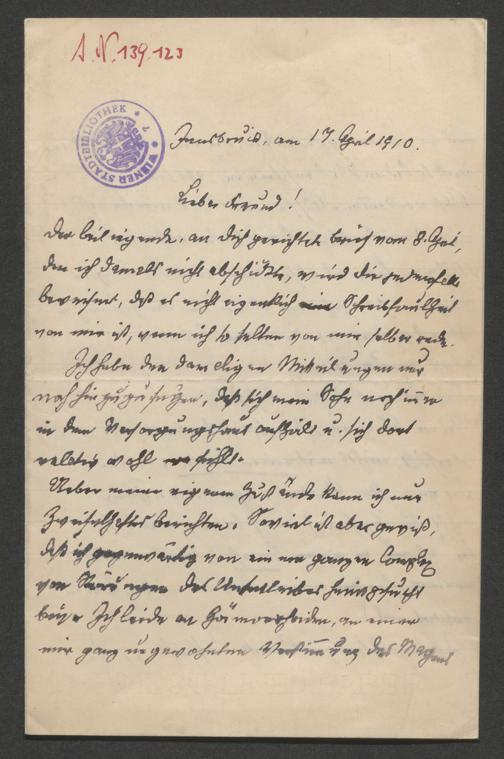 J. N. 139.123
WIENER STADTBIBLIOTHEK
Innsbruck, am 17. April 1910.
Lieber Freund!
Der beiliegende, an Dich gerichtete Brief vom 8. April,
den ich damals nicht abschickte, wird Dir
beweisen, daß es nicht eigentlich Schreibfaulheit
von mir ist, wenn ich so selten von mir selber rede.
Ich habe den damaligen Mitteilungen nur
noch hinzuzufügen, daß sich mein Sohn noch immer
in dem Versorgungshaus aufhält u. sich dort
relativ wohl fühlt.
Ueber meine eigenen Zustände kann ich nur
Zweifelhaftes berichten. Soviel ist aber gewiß,
daß ich gegenwärtig von einem ganzen Complex
von Störungen des Unterleibes heimgesucht
bin. Ich leide an Hämorrhoiden, an einer
mir ganz ungewohnten Verstimmung des Magens